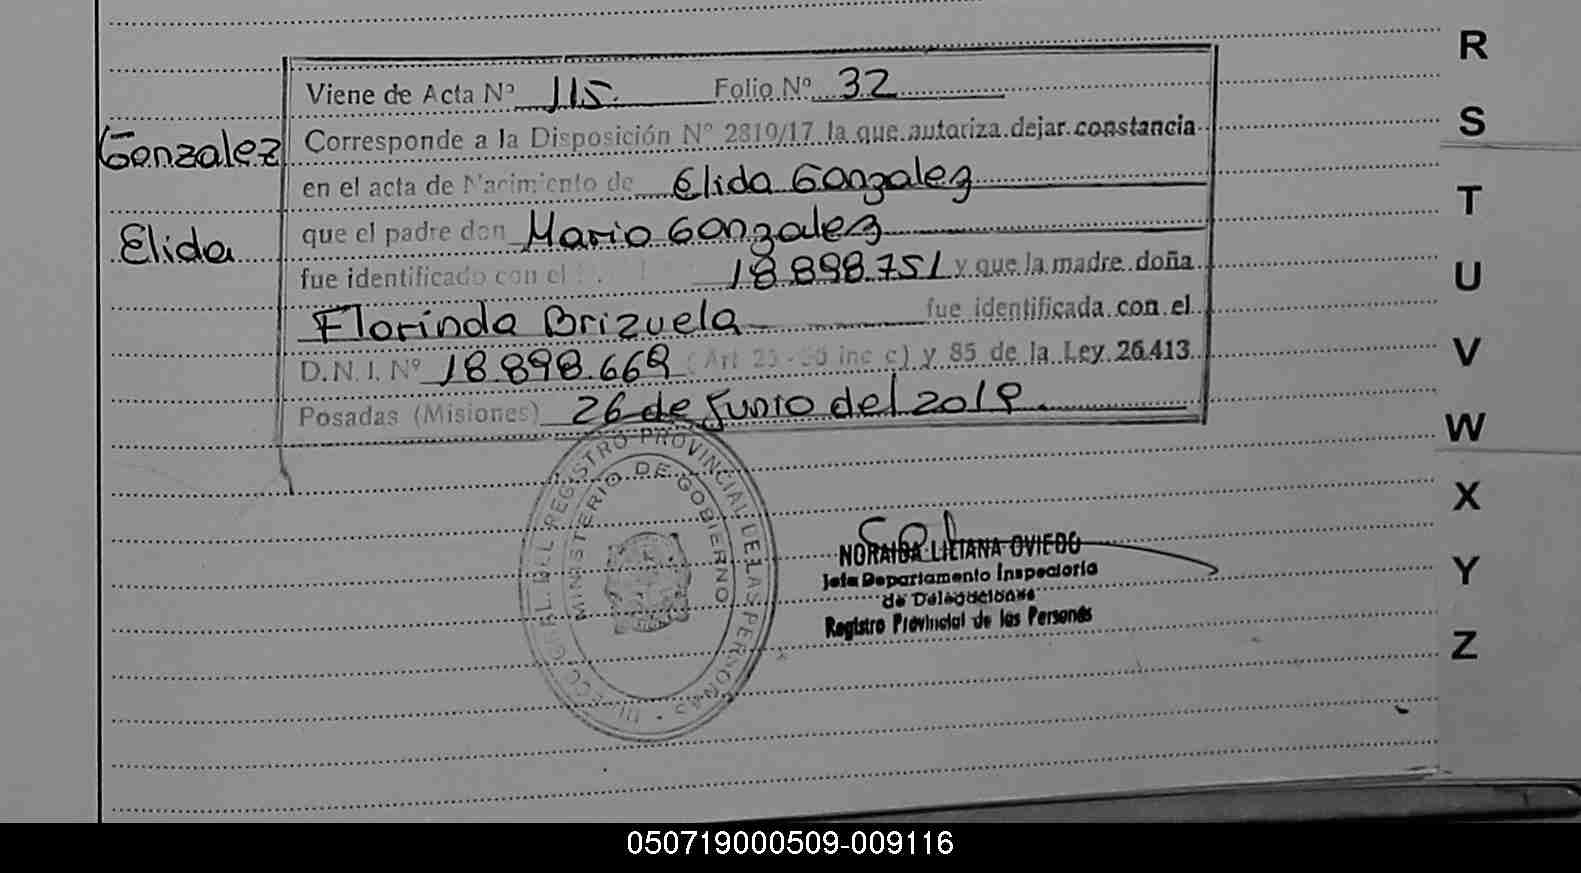 Viene de Acta Nº 115. Folio Nº 32
Gonzalez
Corresponde a la Disposición Nº 2819/17 la que autoriza dejar constancia
en el acta de Nacimiento de Elida Gonzalez
Elida
que el padre don Mario Gonzalez
fue identificado con el 18.898.751 y que la madre doña
Florinda Brizuela fue identificada con el
D.N.I. Nº 18.898.669 (Art 25 - inc c) y 85 de la Ley 26.413
Posadas (Misiones) 26 de Junio del 2019.
REGISTRO PROVINCIAL DE LAS PERSONAS
MINISTERIO DE GOBIERNO
NORAIDA LILIANA OVIEDO
Jefa Departamento Inspectoria
de Delegaciones
Registro Provincial de las Personas
R
S
T
U
V
W
X
Y
Z
050719000509-009116